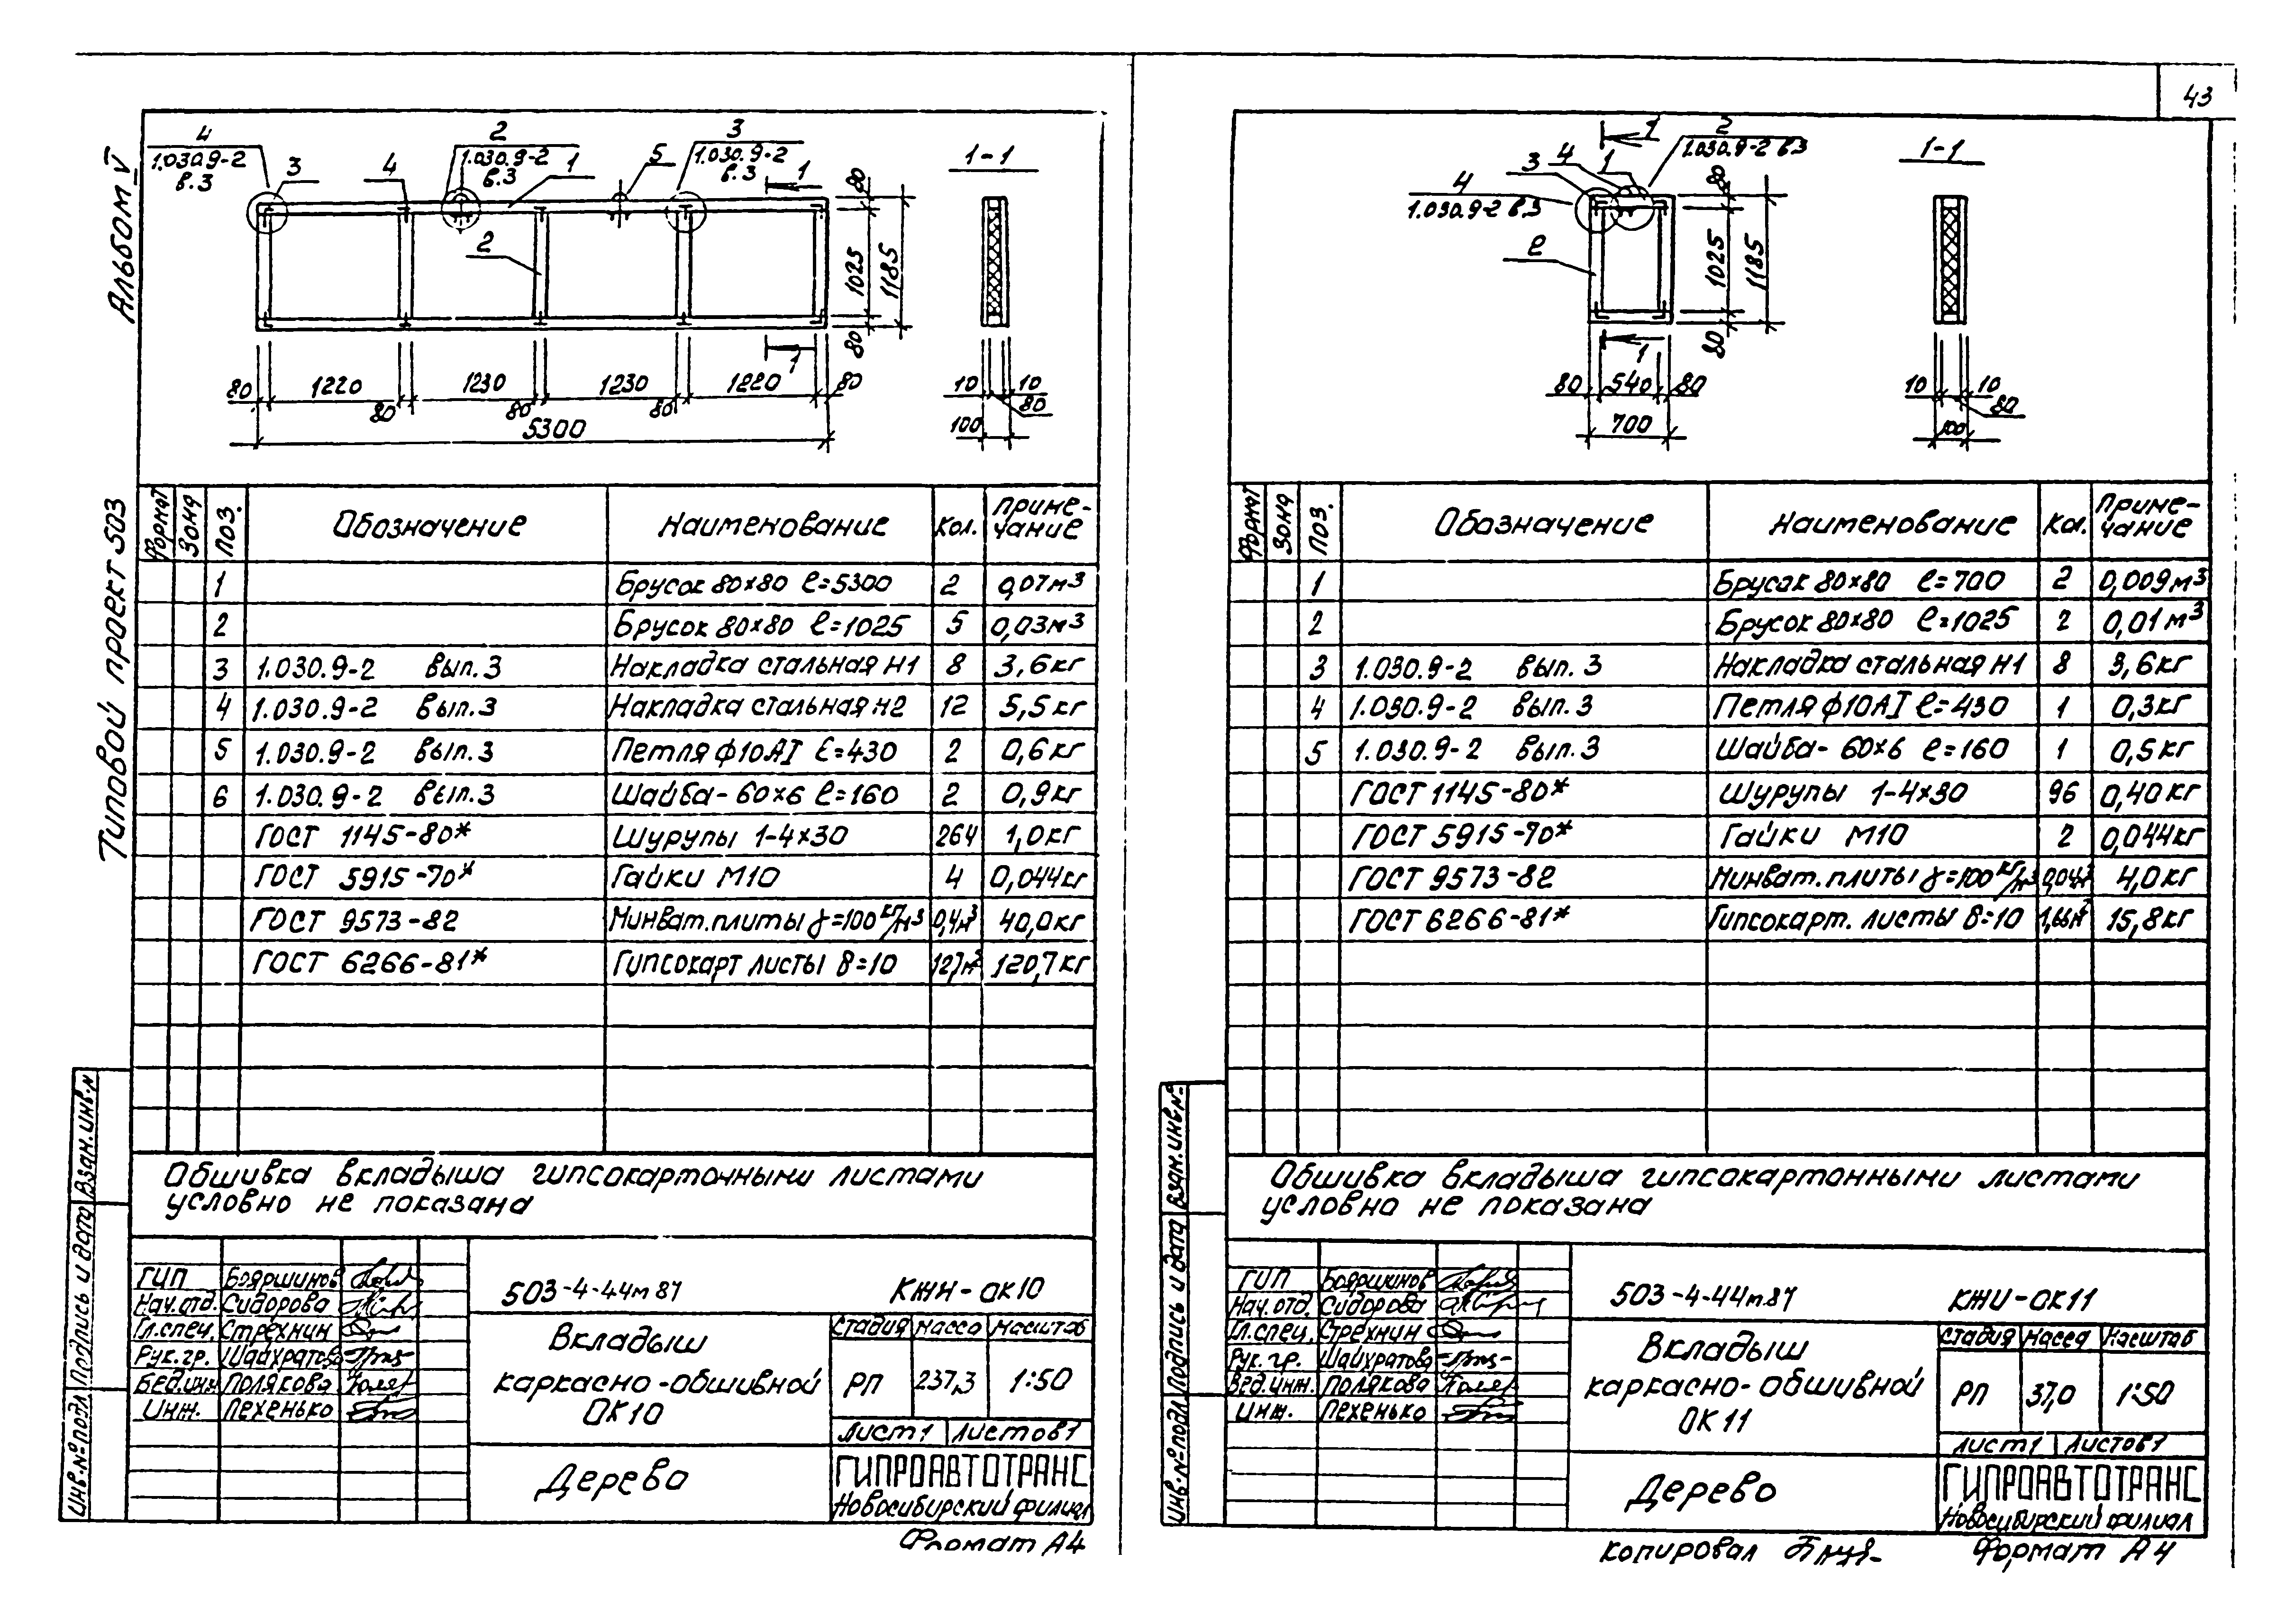 43
Альбом V
Типовой проект 503
4
1.030.9-2
в.3
3
4
2
1.030.9-2
в.3
1
5
3
1.030.9-2
в.3
1
1-1
2
80
1025
1185
80
1
80
1220
80
1230
80
1230
80
1220
80
5300
10
10
80
100
Формат
Зона
Поз.
Обозначение
Наименование
Кол.
Приме-
чание
1 Брусок 80×80 ℓ=5300 2 0,07м³
2 Брусок 80×80 ℓ=1025 5 0,03м³
3 1.030.9-2 вып.3 Накладка стальная Н1 8 3,6кг
4 1.030.9-2 вып.3 Накладка стальная Н2 12 5,5кг
5 1.030.9-2 вып.3 Петля ф10АI ℓ=430 2 0,6кг
6 1.030.9-2 вып.3 Шайба-60×6 ℓ=160 2 0,9кг
ГОСТ 1145-80* Шурупы 1-4×30 264 1,0кг
ГОСТ 5915-70* Гайки М10 4 0,044кг
ГОСТ 9573-82 Минват.плиты γ=100кг/м3 0,4м³ 40,0кг
ГОСТ 6266-81* Гипсокарт листы δ=10 12,7м² 120,7кг
Обшивка вкладыша гипсокартонными листами
условно не показана
Взам.инв.N
Подпись и дата
Инв.№подл
ГИП Бояршинов
Нач.отд. Сидорова
Гл.спец. Стрехнин
Рук.гр. Шайхратова
Вед.инж Полякова
Инж. Пехенько
503-4-44м 87
КЖИ-ОК10
Вкладыш
каркасно-обшивной
ОК10
Стадия Масса Масштаб
РП 237,3 1:50
Лист1 Листов1
Дерево
ГИПРОАВТОТРАНС
Новосибирский филиал
Формат А4
1
2
1.030.9-2 в.3
3
4
1
4
1.030.9-2 в.3
2
80
1025
1185
80
1
80
540
80
700
1-1
10
10
80
100
Формат
Зона
Поз.
Обозначение
Наименование
Кол.
Приме-
чание
1 Брусок 80×80 ℓ=700 2 0,009м³
2 Брусок 80×80 ℓ=1025 2 0,01м³
3 1.030.9-2 вып.3 Накладка стальная Н1 8 3,6кг
4 1.030.9-2 вып.3 Петля ф10АI ℓ=430 1 0,3кг
5 1.030.9-2 вып.3 Шайба-60×6 ℓ=160 1 0,5кг
ГОСТ 1145-80* Шурупы 1-4×30 96 0,40кг
ГОСТ 5915-70* Гайки М10 2 0,044кг
ГОСТ 9573-82 Минват.плиты γ=100кг/м3 0,04м³ 4,0кг
ГОСТ 6266-81* Гипсокарт. листы δ=10 1,66м² 15,8кг
Обшивка вкладыша гипсокартонными листами
условно не показана
Взам.инв.№
Подпись и дата
Инв.№подл
ГИП Бояршинов
Нач.отд. Сидорова
Гл.спец. Стрехнин
Рук.гр. Шайхратова
Вед.инж. Полякова
Инж. Пехенько
503-4-44м.87
КЖИ-ОК11
Вкладыш
каркасно-обшивной
ОК11
Стадия Масса Масштаб
РП 37,0 1:50
Лист1 Листов1
Дерево
ГИПРОАВТОТРАНС
Новосибирский филиал
Копировал
Формат А4